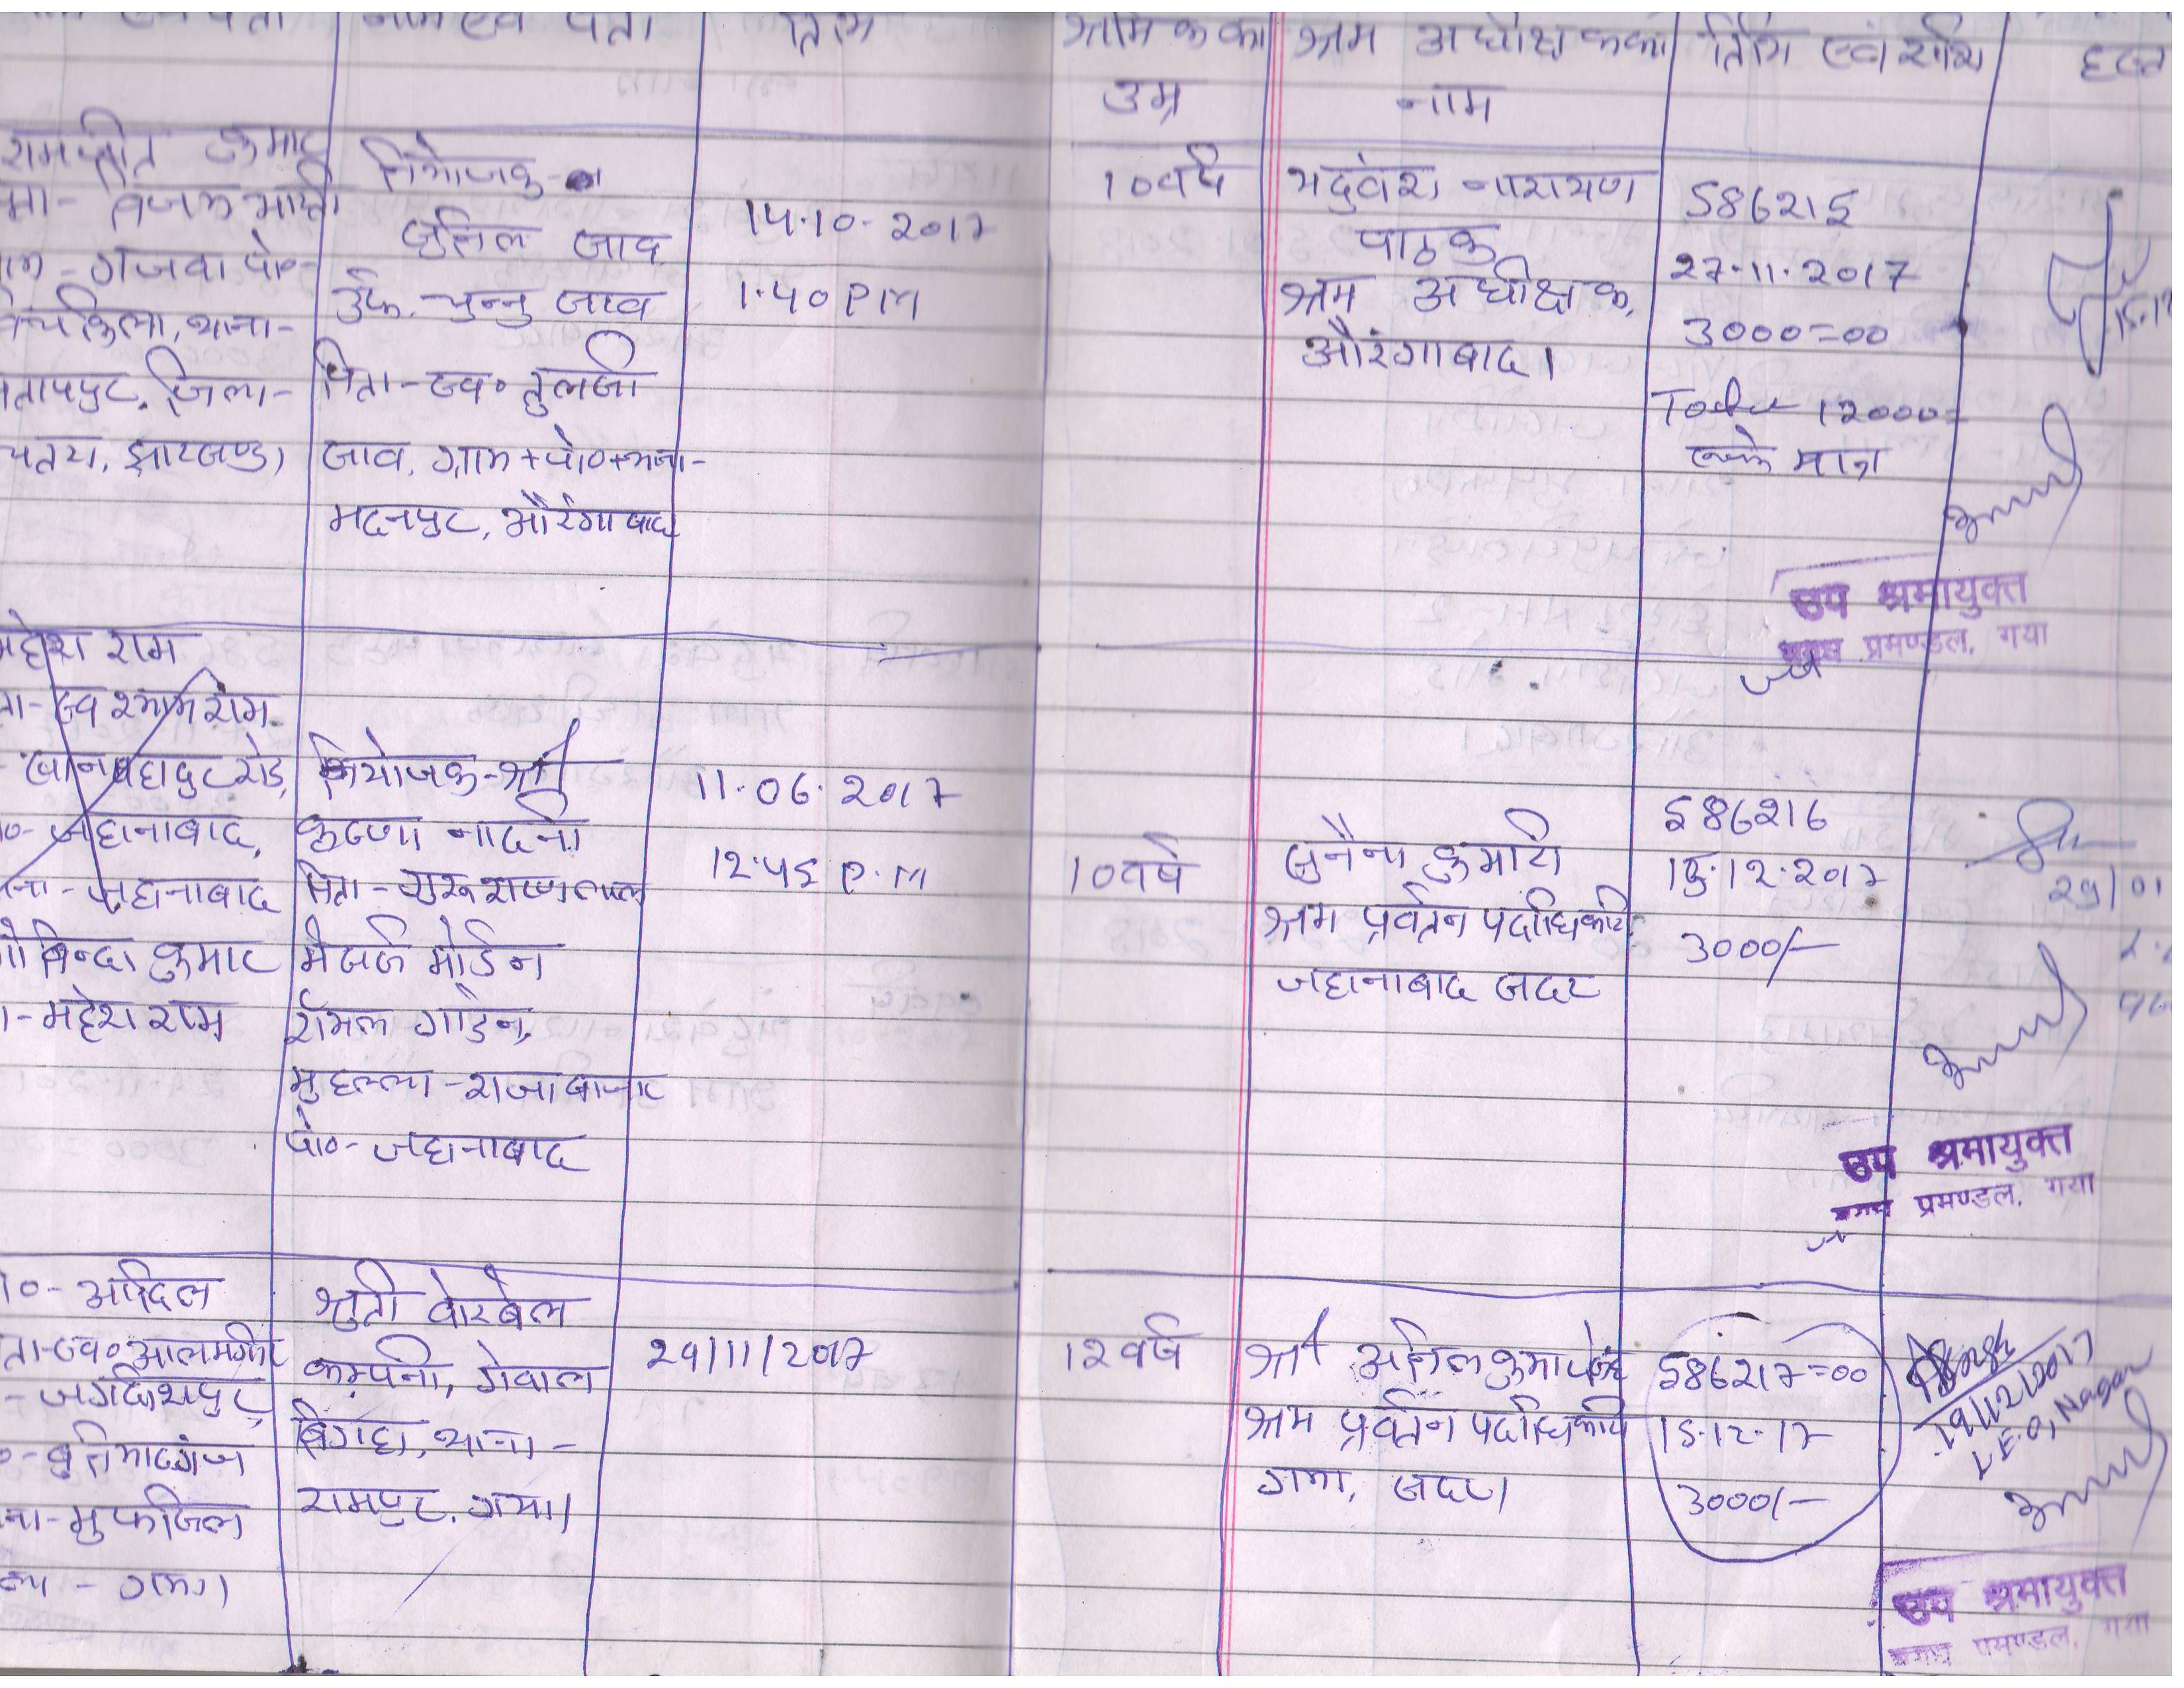 नाम एवं पता
तिथि
श्रमिक का
उम्र
श्रम अधीक्षक का
नाम
तिथि एवं राशि
रामप्रीत कुमार
गजवा पो०-
थाना-
प्रतापपुर, जिला-
चतरा, झारखण्ड)
नियोजक-
सुनिल साव
उर्फ चुन्नु साव
पिता-स्व० तुलसी
साव, ग्राम+पो०+थाना-
मदनपुर, औरंगाबाद
14.10.2017
1.40 PM
10 वर्ष
यदुवंश नारायण
पाठक
श्रम अधीक्षक,
औरंगाबाद।
586215
27.11.2017
3000=00
12000=
रूपये मात्र
उप श्रमायुक्त
मगध प्रमण्डल, गया
महेश राम
स्व श्याम राम
जहानाबाद,
जहानाबाद
गोविन्दा कुमार
-महेश राम
नियोजक-श्री
कृष्णा
पिता-
मैसर्स मोर्डन
रॉयल गार्डेन,
मुहल्ला-राजाबाजार
पो०-जहानाबाद
11.06.2017
12.45 P.M
10 वर्ष
सुनैना कुमारी
श्रम प्रर्वतन पदाधिकारी
जहानाबाद सदर
586216
15.12.2017
3000/-
29/01
उप श्रमायुक्त
मगध प्रमण्डल, गया
आदिल
स्व० आलमगीर
-जगदिशपुर,
-बुनियादगंज
-मुफसिल
- गया)
श्रुती वोरबेल
कम्पनी, गेवाल
बिगहा, थाना-
रामपुर, गया।
29/11/2017
12 वर्ष
श्री अनिल कुमार
श्रम प्रर्वतन पदाधिकारी
गया, सदर।
586217=00
15.12.17
3000/-
19/12/2017
L.E.O, Nagar
उप श्रमायुक्त
मगध प्रमण्डल, गया